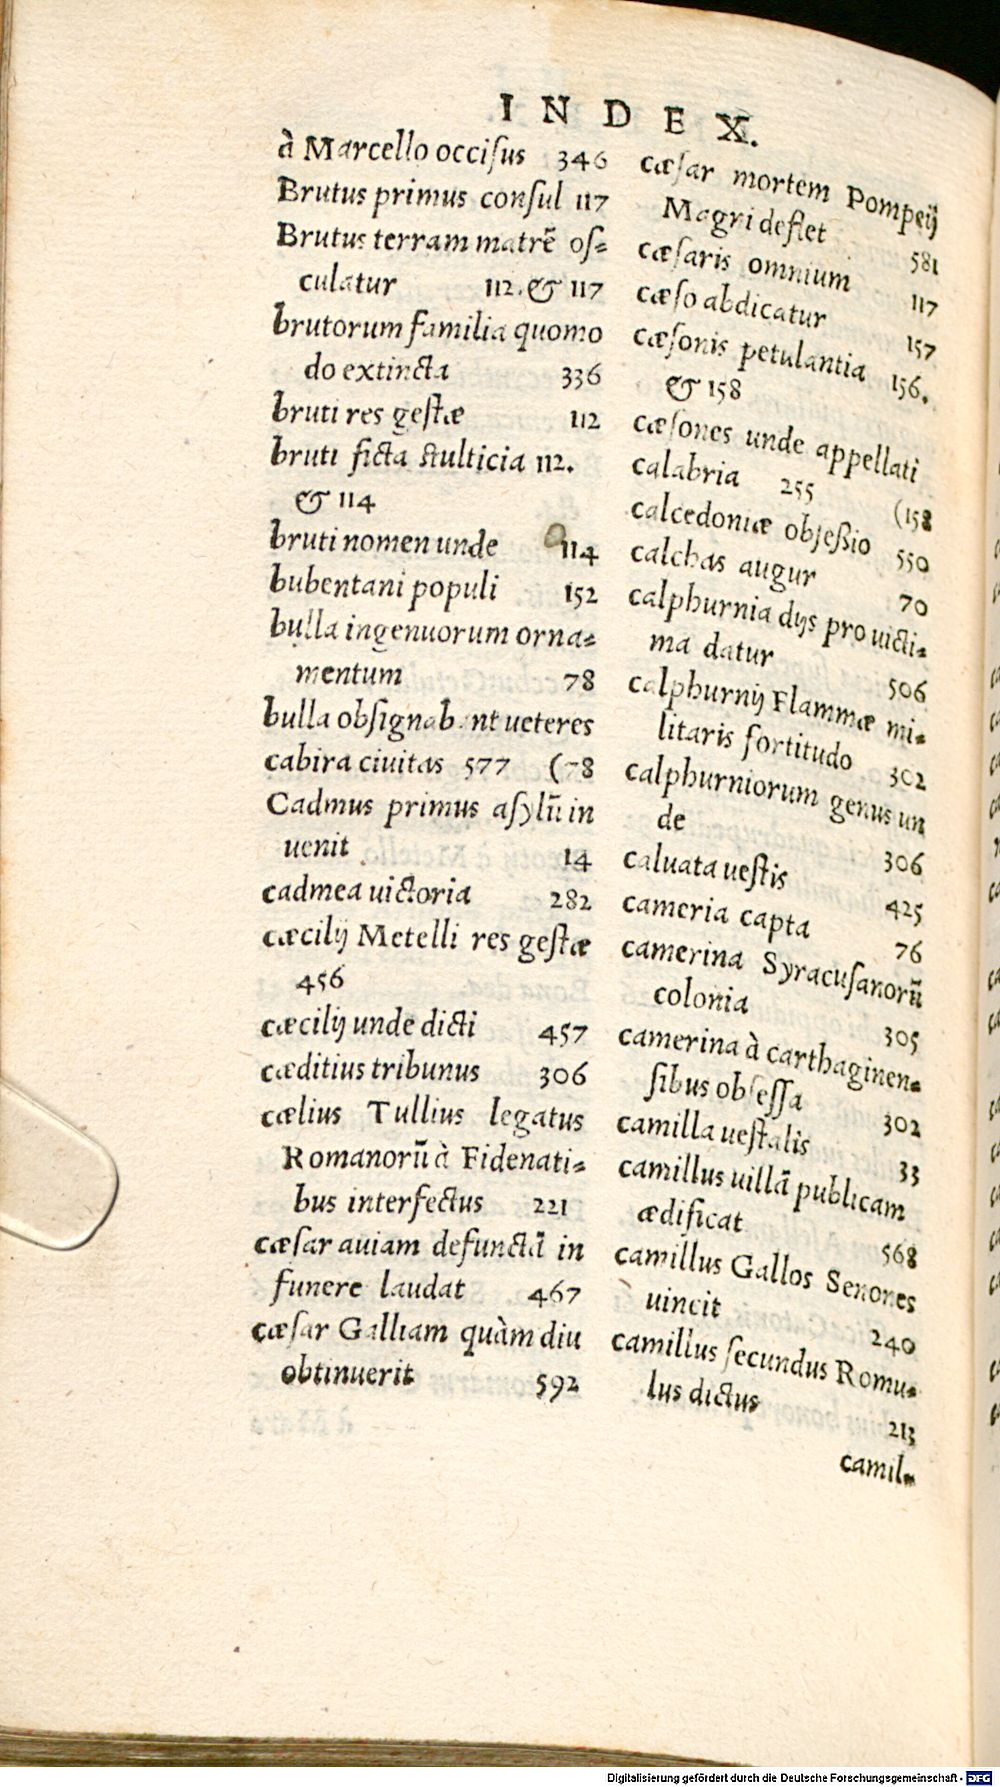 INDEX.
à Marcello occiſus 346
Brutus primus conſul 117
Brutus terram matrē oſ=
culatur 112. & 117
brutorum familia quomo
do extincta 336
bruti res geſtæ 112
bruti ficta ſtulticia 112.
& 114
bruti nomen unde 114
bubentani populi 152
bulla ingenuorum orna=
mentum 78
bulla obſignabant ueteres
cabira ciuitas 577 (78
Cadmus primus aſylū in
uenit 14
cadmea uictoria 282
cæcilij Metelli res geſtæ
456
cæcilij unde dicti 457
cæditius tribunus 306
cælius Tullius legatus
Romanorū à Fidenati=
bus interfectus 221
cæſar auiam defunctā in
funere laudat 467
cæſar Galliam quàm diu
obtinuerit 592
cæſar mortem Pompeij
Magri deflet 581
cæſaris omnium 117
cæſo abdicatur 157
cæſonis petulantia 156.
& 158
cæſones unde appellati
calabria 255 (158
calcedoniæ obſeßio 550
calchas augur 70
calphurnia dijs pro uicti=
ma datur 506
calphurnij Flammæ mi=
litaris fortitudo 302
calphurniorum genus un
de 306
caluata ueſtis 425
cameria capta 76
camerina Syracuſanorū
colonia 305
camerina à carthaginen=
ſibus obſeſſa 302
camilla ueſtalis 33
camillus uillā publicam
ædificat 568
camillus Gallos Senones
uincit 240
camillus ſecundus Romu=
lus dictus 213
camil=
Digitalisierung gefördert durch die Deutsche Forschungsgemeinschaft - DFG